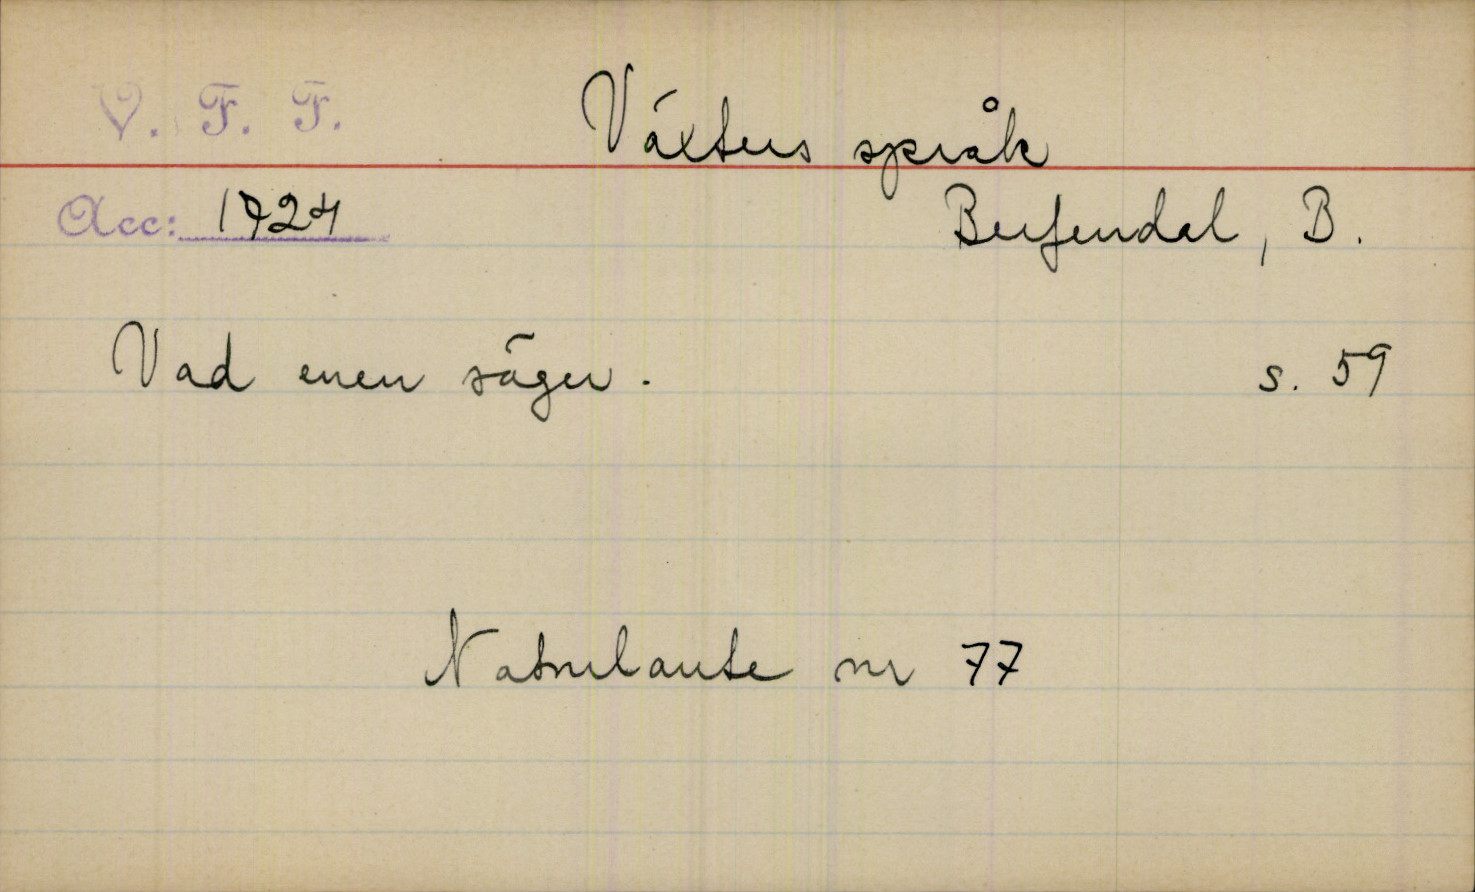 V. F. F.
Växters språk
Acc: 1924
Berfendal, B.
Vad enen säger. s. 59
Naturlaute nr 77